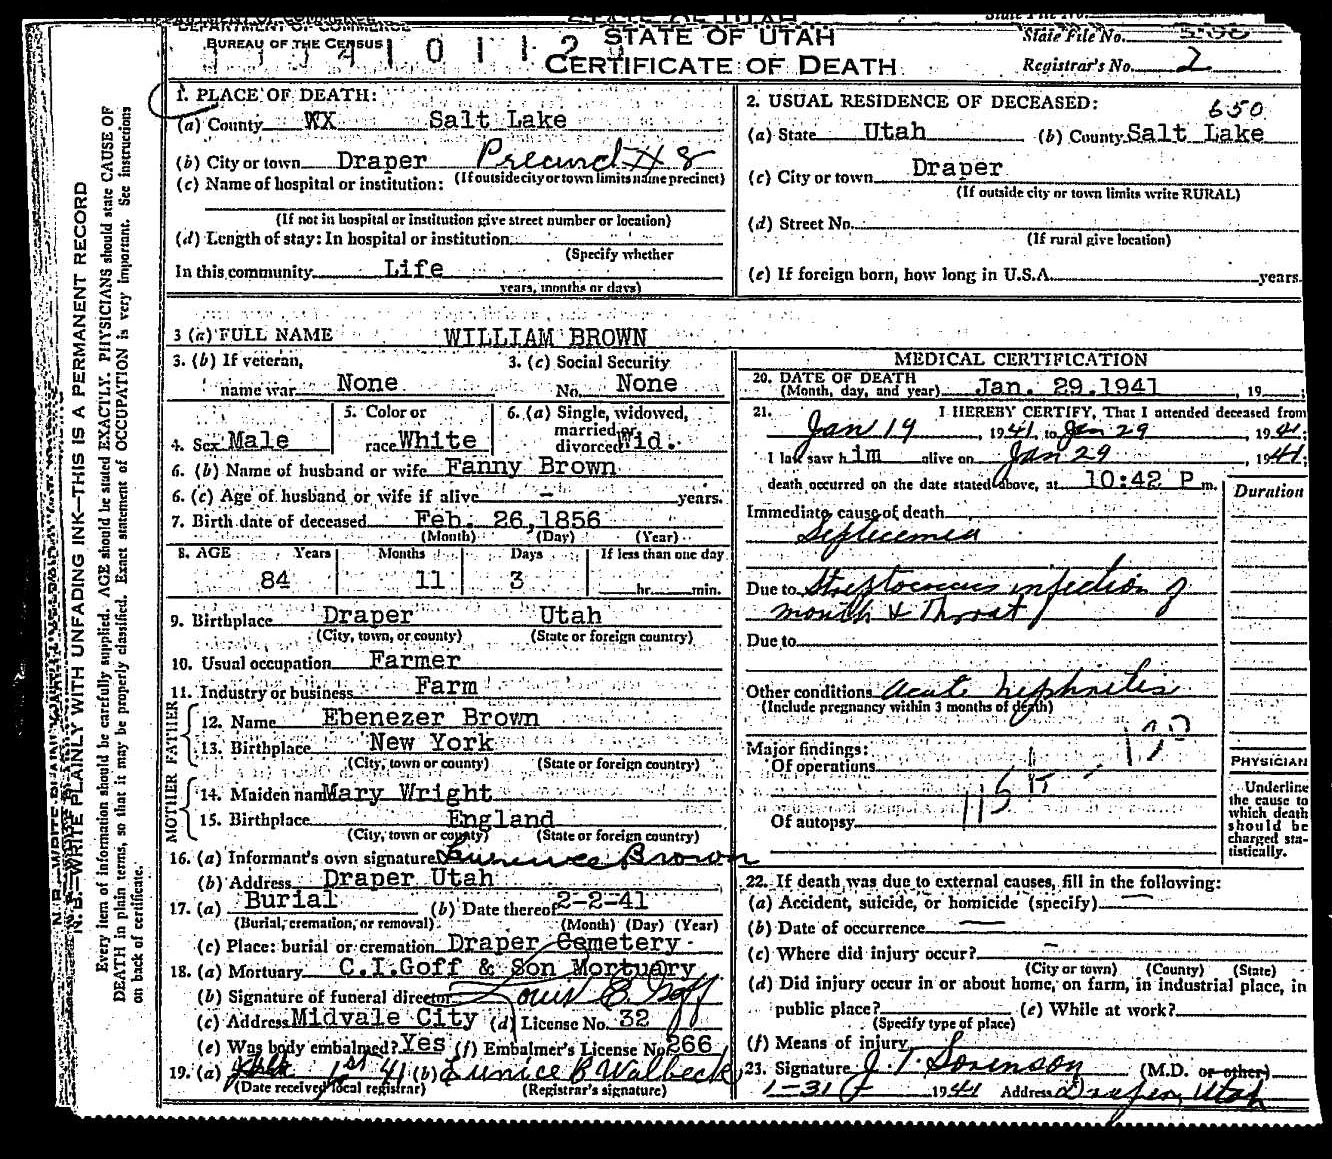 DEPARTMENT OF COMMERCE
BUREAU OF THE CENSUS
STATE OF UTAH
CERTIFICATE OF DEATH
State File No.
Registrar's No. 2
1. PLACE OF DEATH:
(a) County WX Salt Lake
(b) City or town Draper Precinct # 8
(If outside city or town limits name precinct)
(c) Name of hospital or institution:
(If not in hospital or institution give street number or location)
(d) Length of stay: In hospital or institution
(Specify whether
In this community Life
years, months or days)
2. USUAL RESIDENCE OF DECEASED: 650
(a) State Utah (b) County Salt Lake
(c) City or town Draper
(If outside city or town limits write RURAL)
(d) Street No.
(If rural give location)
(e) If foreign born, how long in U.S.A. years.
3 (a) FULL NAME WILLIAM BROWN
3. (b) If veteran, name war None
3. (c) Social Security No. None
4. Sex Male
5. Color or race White
6. (a) Single, widowed, married or divorced Wid.
6. (b) Name of husband or wife Fanny Brown
6. (c) Age of husband or wife if alive - years.
7. Birth date of deceased Feb. 26, 1856
(Month) (Day) (Year)
8. AGE Years Months Days If less than one day
84 11 3 hr. min.
9. Birthplace Draper Utah
(City, town, or county) (State or foreign country)
10. Usual occupation Farmer
11. Industry or business Farm
FATHER
12. Name Ebenezer Brown
13. Birthplace New York
(City, town or county) (State or foreign country)
MOTHER
14. Maiden name Mary Wright
15. Birthplace England
(City, town or county) (State or foreign country)
16. (a) Informant's own signature Lawrence Brown
(b) Address Draper Utah
17. (a) Burial (b) Date thereof 2-2-41
(Burial, cremation, or removal) (Month) (Day) (Year)
(c) Place: burial or cremation Draper Cemetery
18. (a) Mortuary C.I.Goff & Son Mortuary
(b) Signature of funeral director Louis E. Goff
(c) Address Midvale City (d) License No. 32
(e) Was body embalmed? Yes (f) Embalmer's License No. 266
19. (a) 1st 41 (b) Eunice B Walbeck
(Date received local registrar) (Registrar's signature)
MEDICAL CERTIFICATION
20. DATE OF DEATH
(Month, day, and year) Jan. 29.1941, 19
21. I HEREBY CERTIFY, That I attended deceased from
Jan 19, 1941, to Jan 29, 1941;
I last saw him alive on Jan 29, 1941;
death occurred on the date stated above, at 10:42 P m.
Duration
Immediate cause of death
Septicemea
Due to Streptococcus infection of
mouth & Throat
Due to
Other conditions acute nephritis
(Include pregnancy within 3 months of death)
Major findings:
Of operations
115
Of autopsy
PHYSICIAN
Underline
the cause to
which death
should be
charged sta-
tistically.
22. If death was due to external causes, fill in the following:
(a) Accident, suicide, or homicide (specify) —
(b) Date of occurrence —
(c) Where did injury occur? -
(City or town) (County) (State)
(d) Did injury occur in or about home, on farm, in industrial place, in
public place? (e) While at work?
(Specify type of place)
(f) Means of injury
23. Signature J. T. Sorenson (M.D. or other)
1-31 1941 Address Draper, Utah
N.B.—WRITE PLAINLY WITH UNFADING INK—THIS IS A PERMANENT RECORD
Every item of information should be carefully supplied. AGE should be stated EXACTLY. PHYSICIANS should state CAUSE OF
DEATH in plain terms, so that it may be properly classified. Exact statement of OCCUPATION is very important. See instructions
on back of certificate.